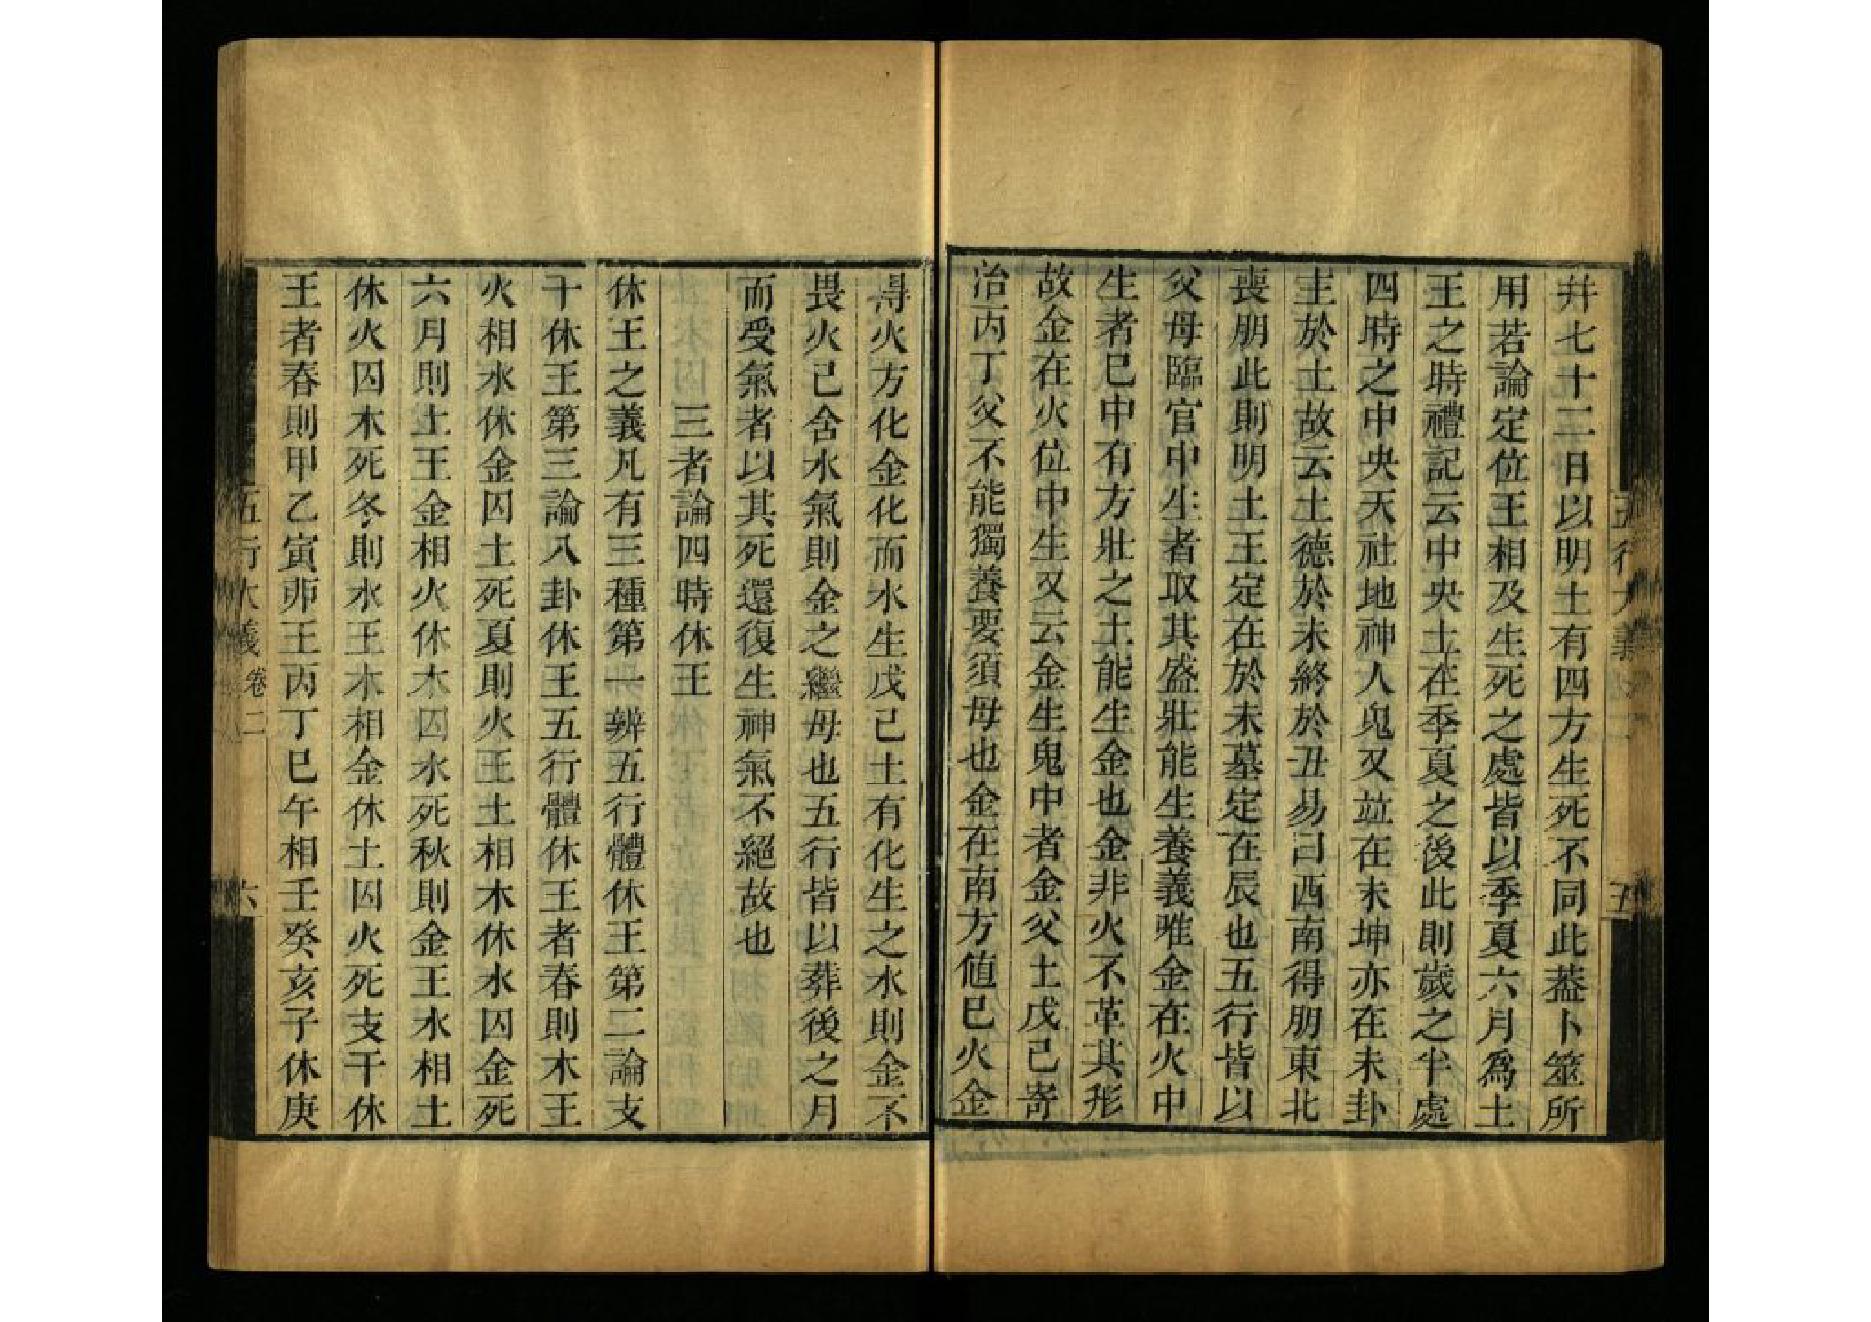 五行大義
五
幷七十二日以明土有四方生死不同此葢卜筮所
用若論定位王相及生死之處皆以季夏六月爲土
王之時禮記云中央土在季夏之後此則歲之半處
四時之中央天社地神人鬼又竝在未坤亦在未卦
主於土故云土德於未終於丑易曰西南得朋東北
喪朋此則明土王定在於未墓定在辰也五行皆以
父母臨官中生者取其盛壯能生養義唯金在火中
生者巳中有方壯之土能生金也金非火不革其形
故金在火位中生又云金生鬼中者金父土戊己寄
治丙丁父不能獨養要須母也金在南方值巳火金
得火方化金化而水生戊己土有化生之水則金不
畏火己舍水氣則金之繼母也五行皆以葬後之月
而受氣者以其死還復生神氣不絕故也
三者論四時休王
休王之義凡有三種第一辨五行體休王第二論支
干休王第三論八卦休王五行體休王者春則木王
火相水休金囚土死夏則火王土相木休水囚金死
六月則土王金相火休木囚水死秋則金王水相土
休火囚木死冬則水王木相金休土囚火死支干休
王者春則甲乙寅卯王丙丁巳午相壬癸亥子休庚
五行大義 卷二
六